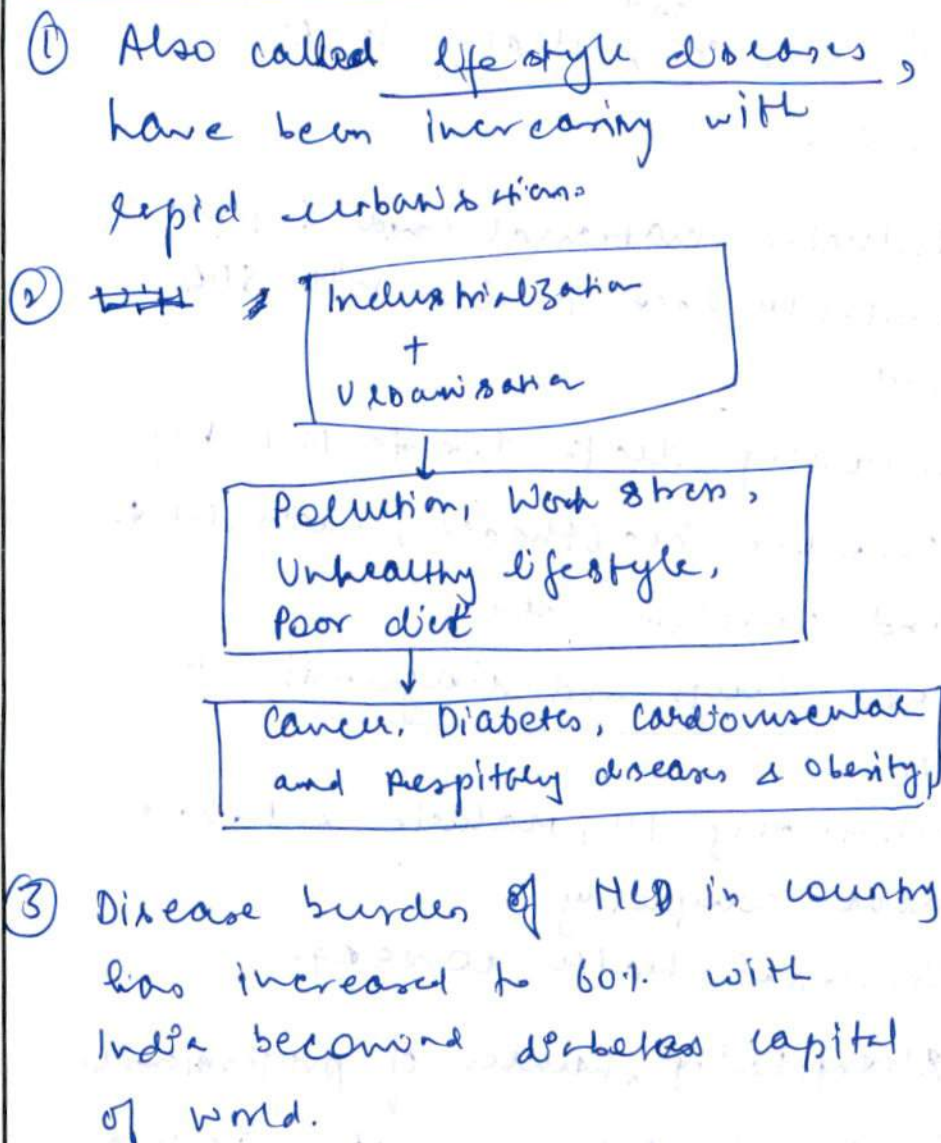 ① Also called lifestyle diseases,
have been increasing with
rapid urbanisation.
②
Industrialization
+
Urbanisation
Pollution, Work stress,
Unhealthy lifestyle,
Poor diet
Cancer, Diabetes, Cardiovascular
and Respiratory diseases & Obesity,
③ Disease burden of NCD in country
has increased to 60% with
India becoming diabetes capital
of world.